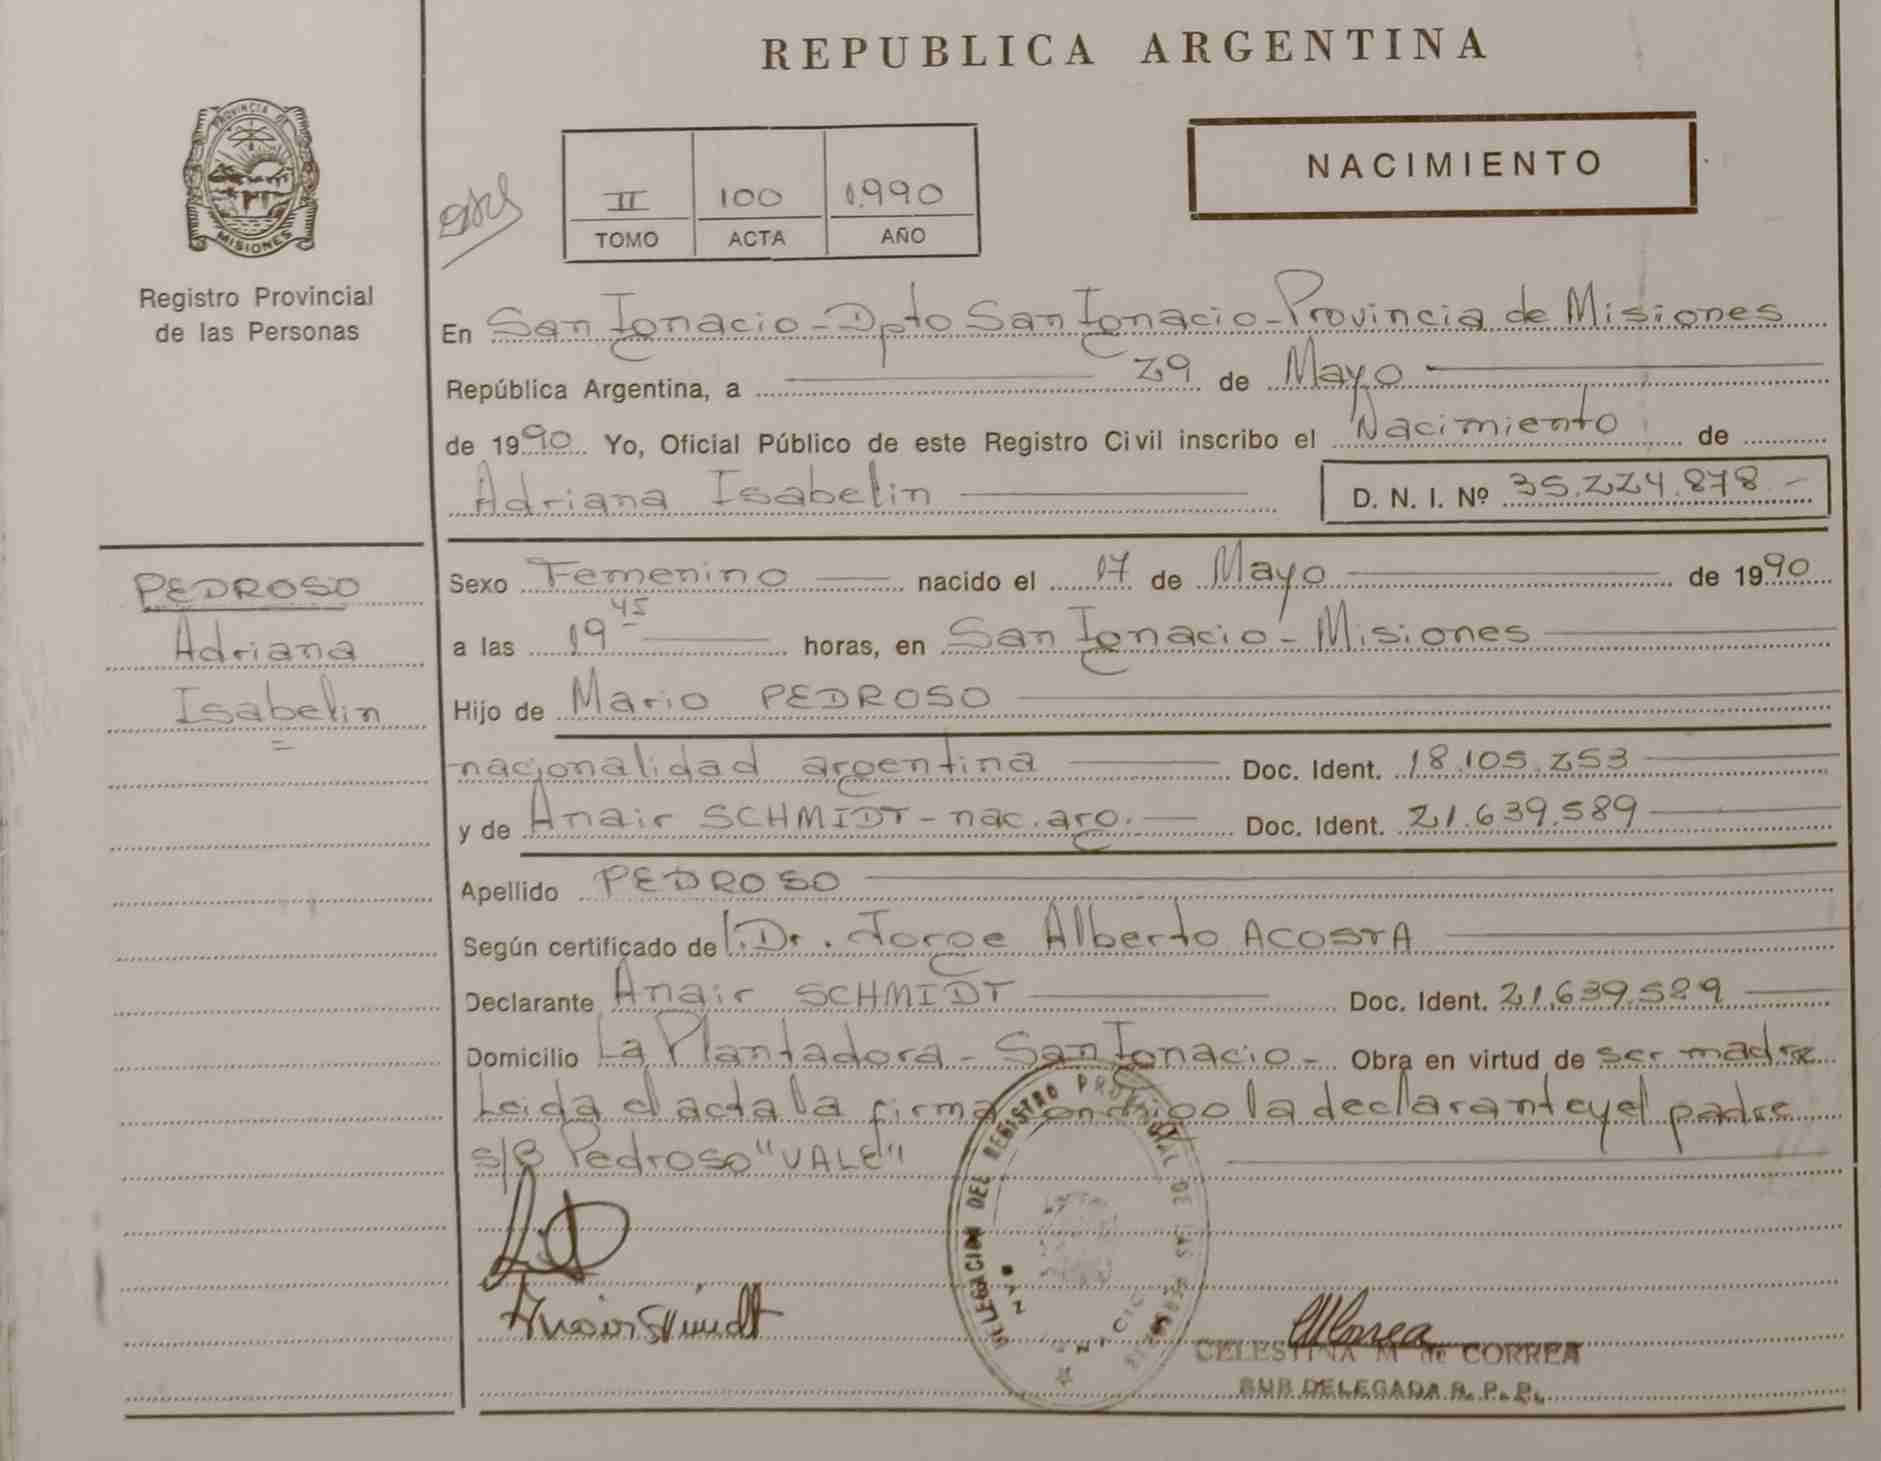 REPUBLICA ARGENTINA
PROVINCIA DE
MISIONES
Registro Provincial
de las Personas
II 100 1.990
TOMO ACTA AÑO
NACIMIENTO
En San Ignacio - Dpto San Ignacio - Provincia de Misiones
República Argentina, a 29 de Mayo
de 1990 Yo, Oficial Público de este Registro Civil inscribo el Nacimiento de
Adriana Isabelin D. N. I. Nº 35.224.878.-
PEDROSO
Adriana
Isabelin
Sexo Femenino nacido el 17 de Mayo de 1990
a las 19 45 horas, en San Ignacio - Misiones
Hijo de Mario PEDROSO
nacionalidad argentina Doc. Ident. 18.105.253
y de Anair SCHMIDT - nac. arg. Doc. Ident. 21.639.589
Apellido PEDROSO
Según certificado del Dr. Jorge Alberto ACOSTA
Declarante Anair SCHMIDT Doc. Ident. 21.639.589
Domicilio La Plantadora - San Ignacio - Obra en virtud de ser madre
Leida el acta la firma conmigo la declarante y el padre
s/B Pedroso "VALE"
Anair Schmidt
DELEGACION DEL REGISTRO PROVINCIAL DE LAS PERSONAS
CELESTINA M de CORREA
SUB DELEGADA R. P. P.